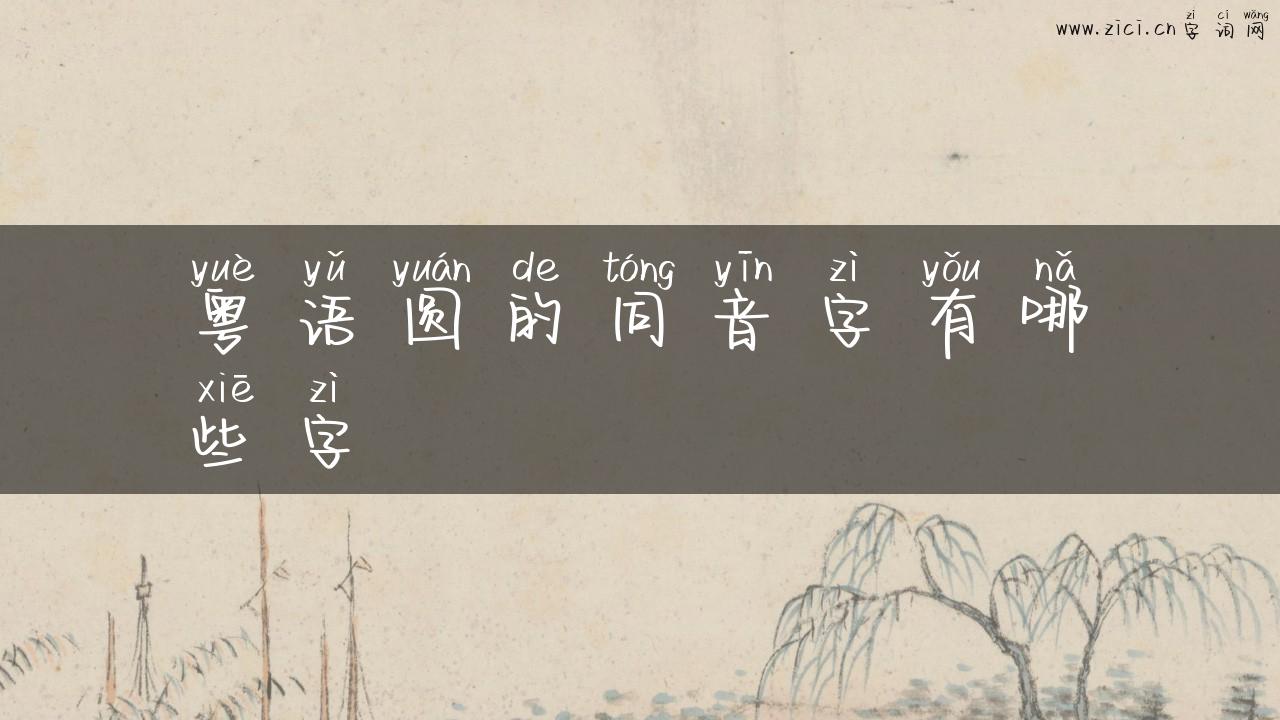 zì cí wǎng
www.zici.cn 字词网
yuè yǔ yuán de tóng yīn zì yǒu nǎ
粤语圆的同音字有哪
xiē zì
些字